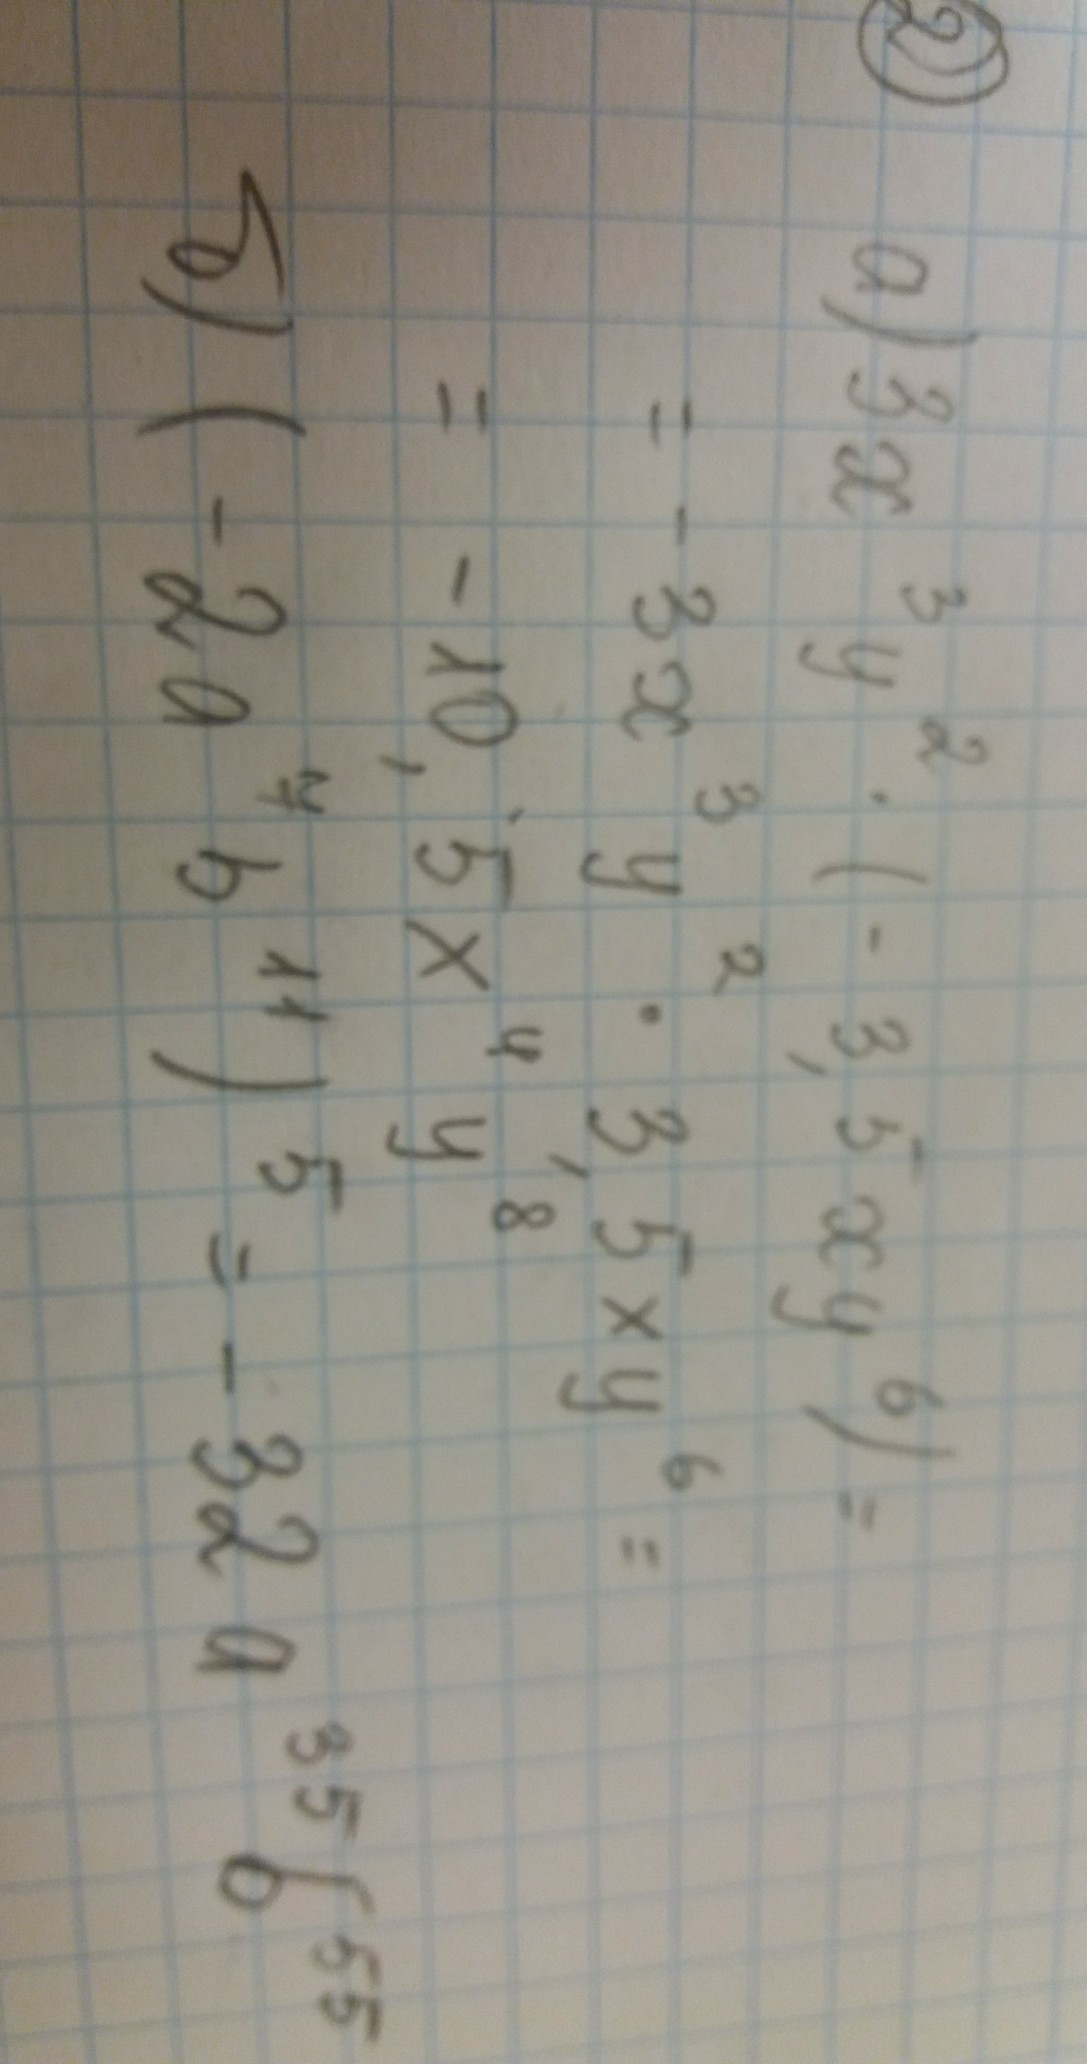 2)
а) 3x³y² · (-3,5xy⁶) =
= -3x³y² · 3,5xy⁶ =
= -10,5x⁴y⁸
б) (-2a⁷b¹¹)⁵ = -32a³⁵b⁵⁵